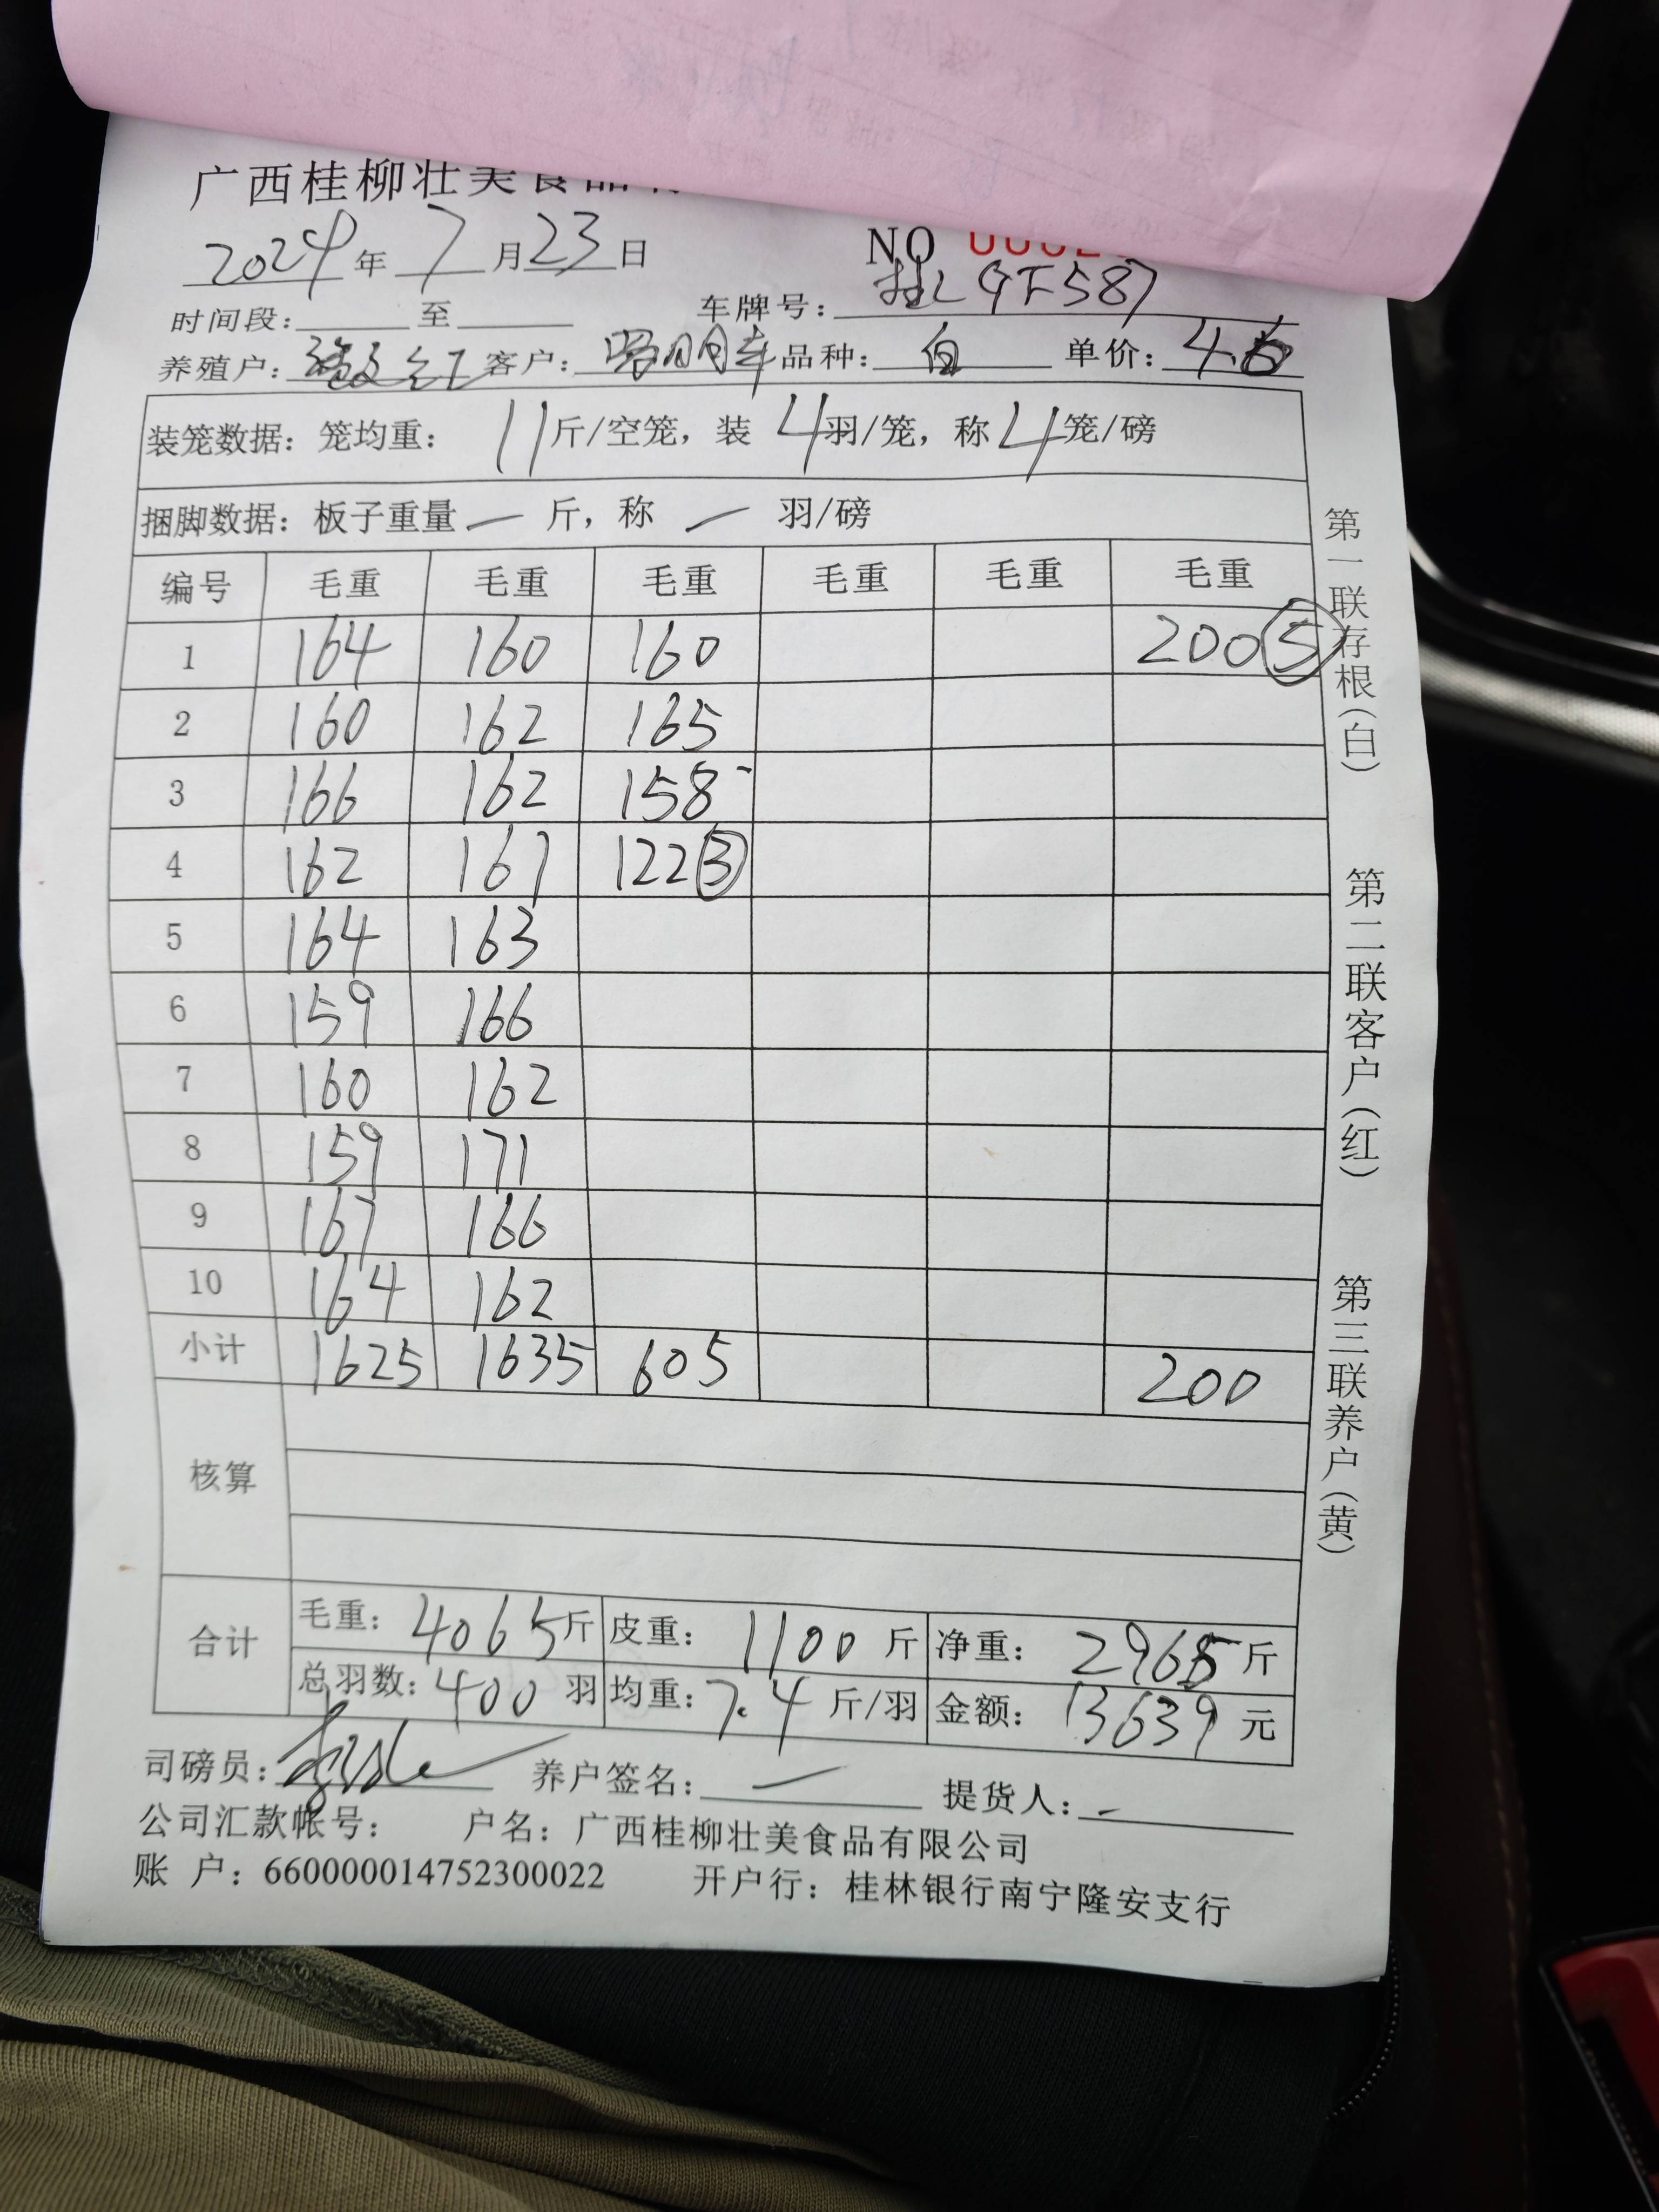 广西桂柳壮美食品
2024年7月23日 NO
时间段: 至 车牌号: 桂L9F587
养殖户: 红 客户: 品种: 白 单价: 4.6
装笼数据: 笼均重: 11斤/空笼, 装 4羽/笼, 称4笼/磅
捆脚数据: 板子重量 — 斤, 称 — 羽/磅
编号 毛重 毛重 毛重 毛重 毛重 毛重
1 164 160 160 200⑤
2 160 162 165
3 166 162 158
4 162 167 122③
5 164 163
6 159 166
7 160 162
8 159 171
9 167 166
10 164 162
小计 1625 1635 605 200
核算
合计 毛重: 4065斤 皮重: 1100斤 净重: 2965斤
总羽数: 400羽 均重: 7.4斤/羽 金额: 13639元
司磅员: 养户签名: — 提货人: -
公司汇款帐号: 户名: 广西桂柳壮美食品有限公司
账 户: 660000014752300022 开户行: 桂林银行南宁隆安支行
第一联存根(白) 第二联客户(红) 第三联养户(黄)